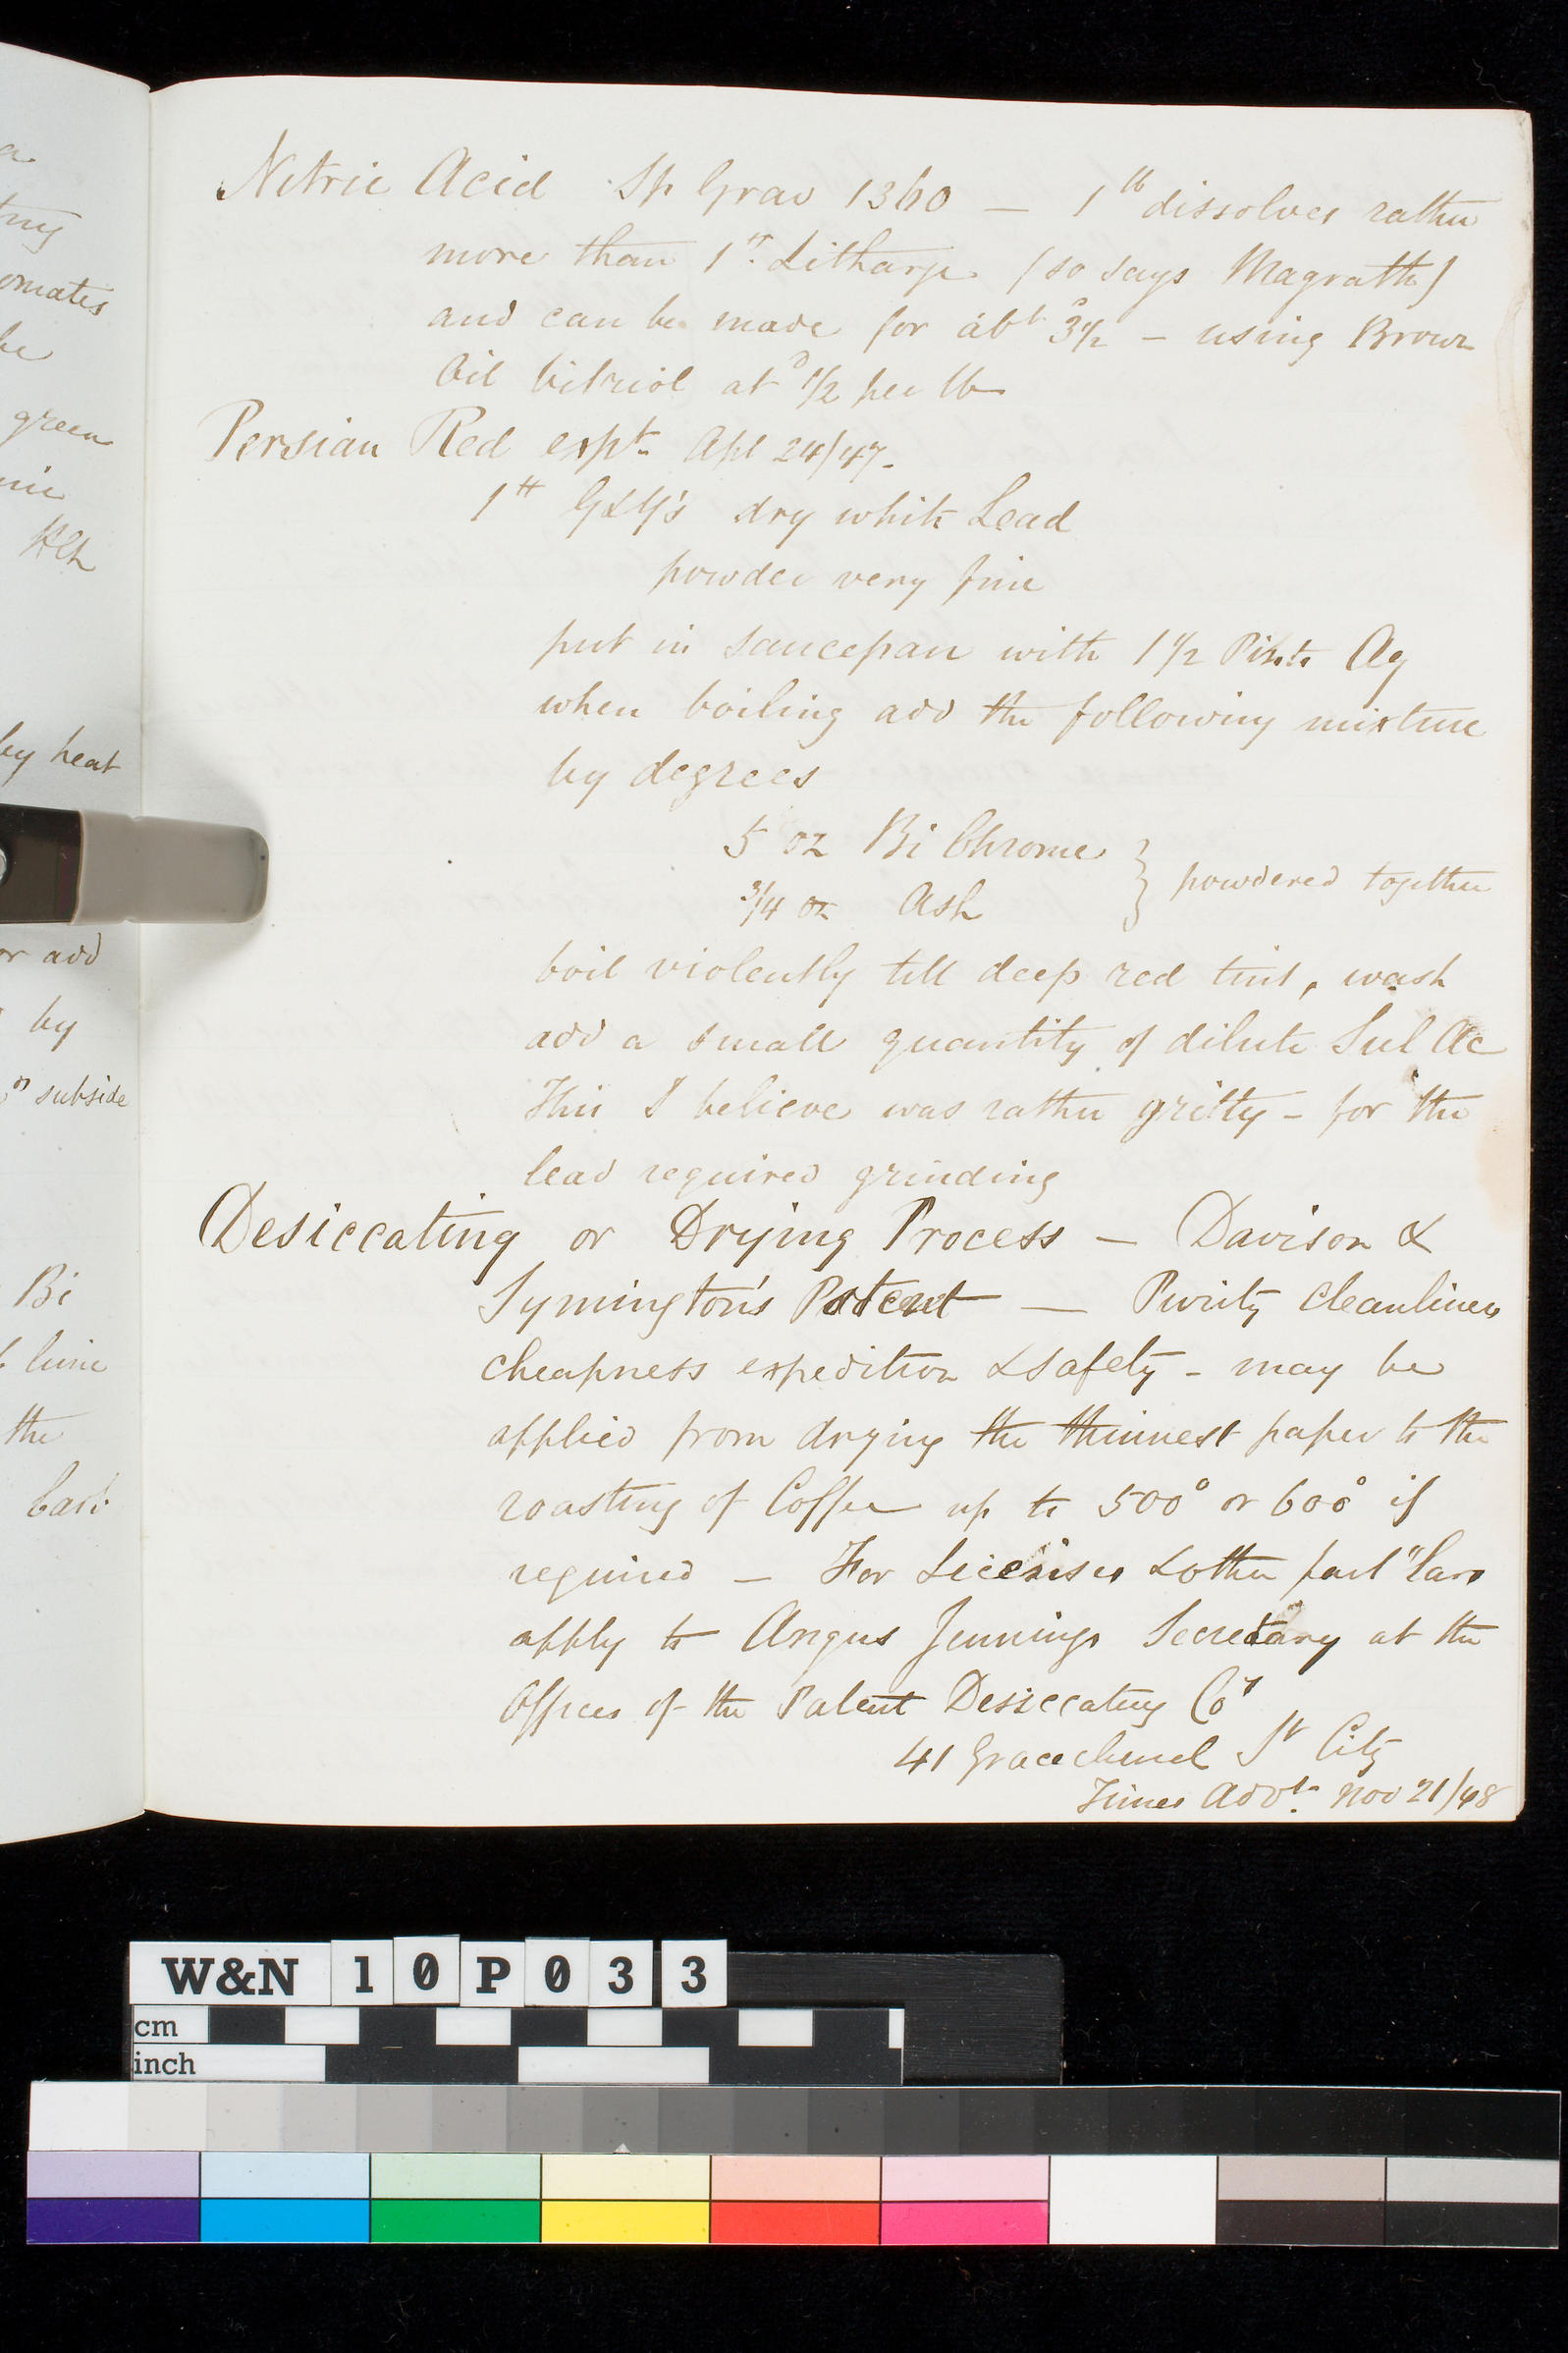 Nitric Acid Sp Grav 1360 — 1 lb dissolves rather
more than 1 lb Litharge (so says Magrath)
and can be made for abt 3½ d — using Brown
Oil Vitriol at ½ d per lb
Persian Red expt Apl 24/47 -
1 lb G&G's dry white Lead
powder very fine
put in saucepan with 1½ Pints Aq
when boiling add the following mixture
by degrees
5 oz Bi Chrome } powdered together
3/4 oz Ash
boil violently till deep red tint, wash
add a small quantity of dilute Sul Ac
This I believe was rather gritty - for the
lead required grinding
Desiccating or Drying Process — Davison &
Symington's Patent — Purity cleanliness
cheapness expedition & safety - may be
applied from drying the thinnest paper to the
roasting of Coffee up to 500° or 600° if
required — For Licenses & other part"lars
apply to Angus Jennings Secretary at the
Offices of the Patent Desiccating Coy
41 Gracechurch St City
Times Advt. Nov 21/48
omates
be
green
by heat
or add
by
subside
Bi
lime
the
Carb
W&N 10P033
cm
inch